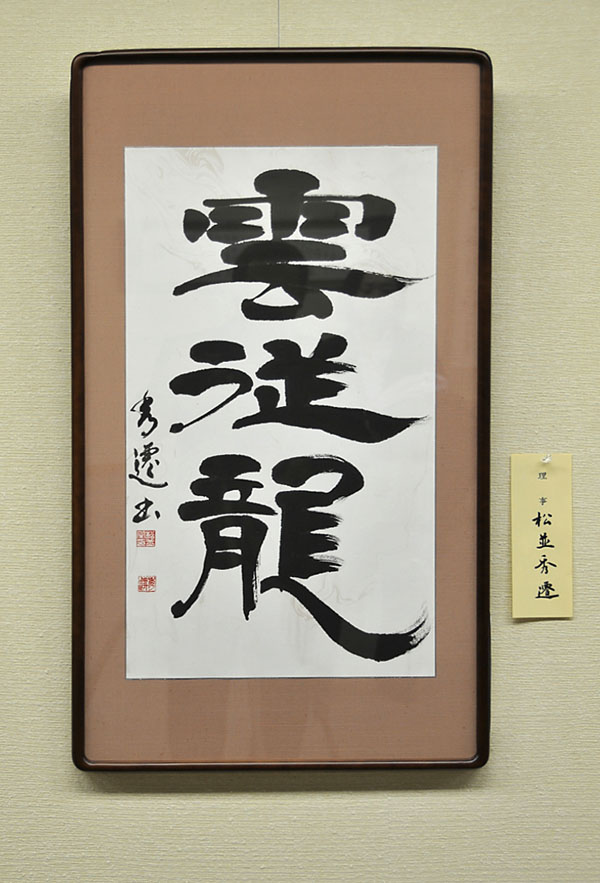 雲従龍
秀邌書
理事
松並秀邌